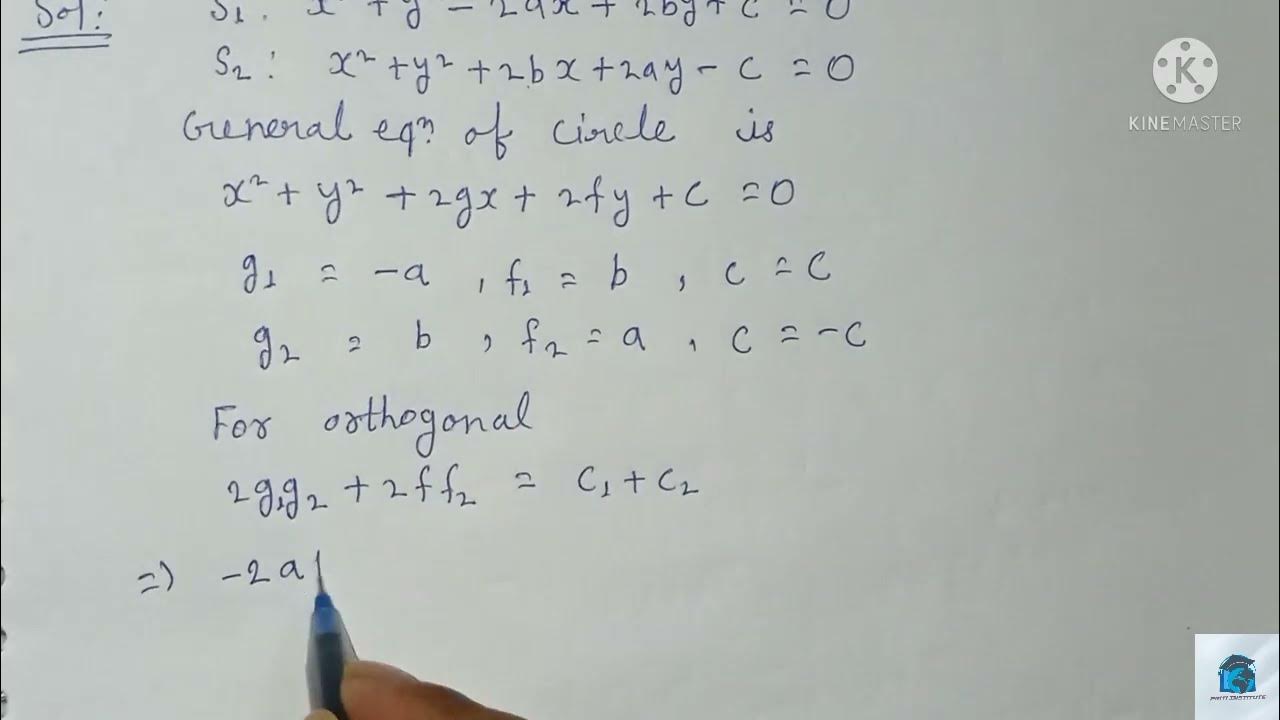 Sol:
S₁: x² + y² - 2ax + 2by + c = 0
S₂: x² + y² + 2bx + 2ay - c = 0
General eqn of circle is
x² + y² + 2gx + 2fy + c = 0
g₁ = -a , f₁ = b , c = c
g₂ = b , f₂ = a , c = -c
For orthogonal
2g₁g₂ + 2f f₂ = c₁ + c₂
⇒) -2a
KINEMASTER